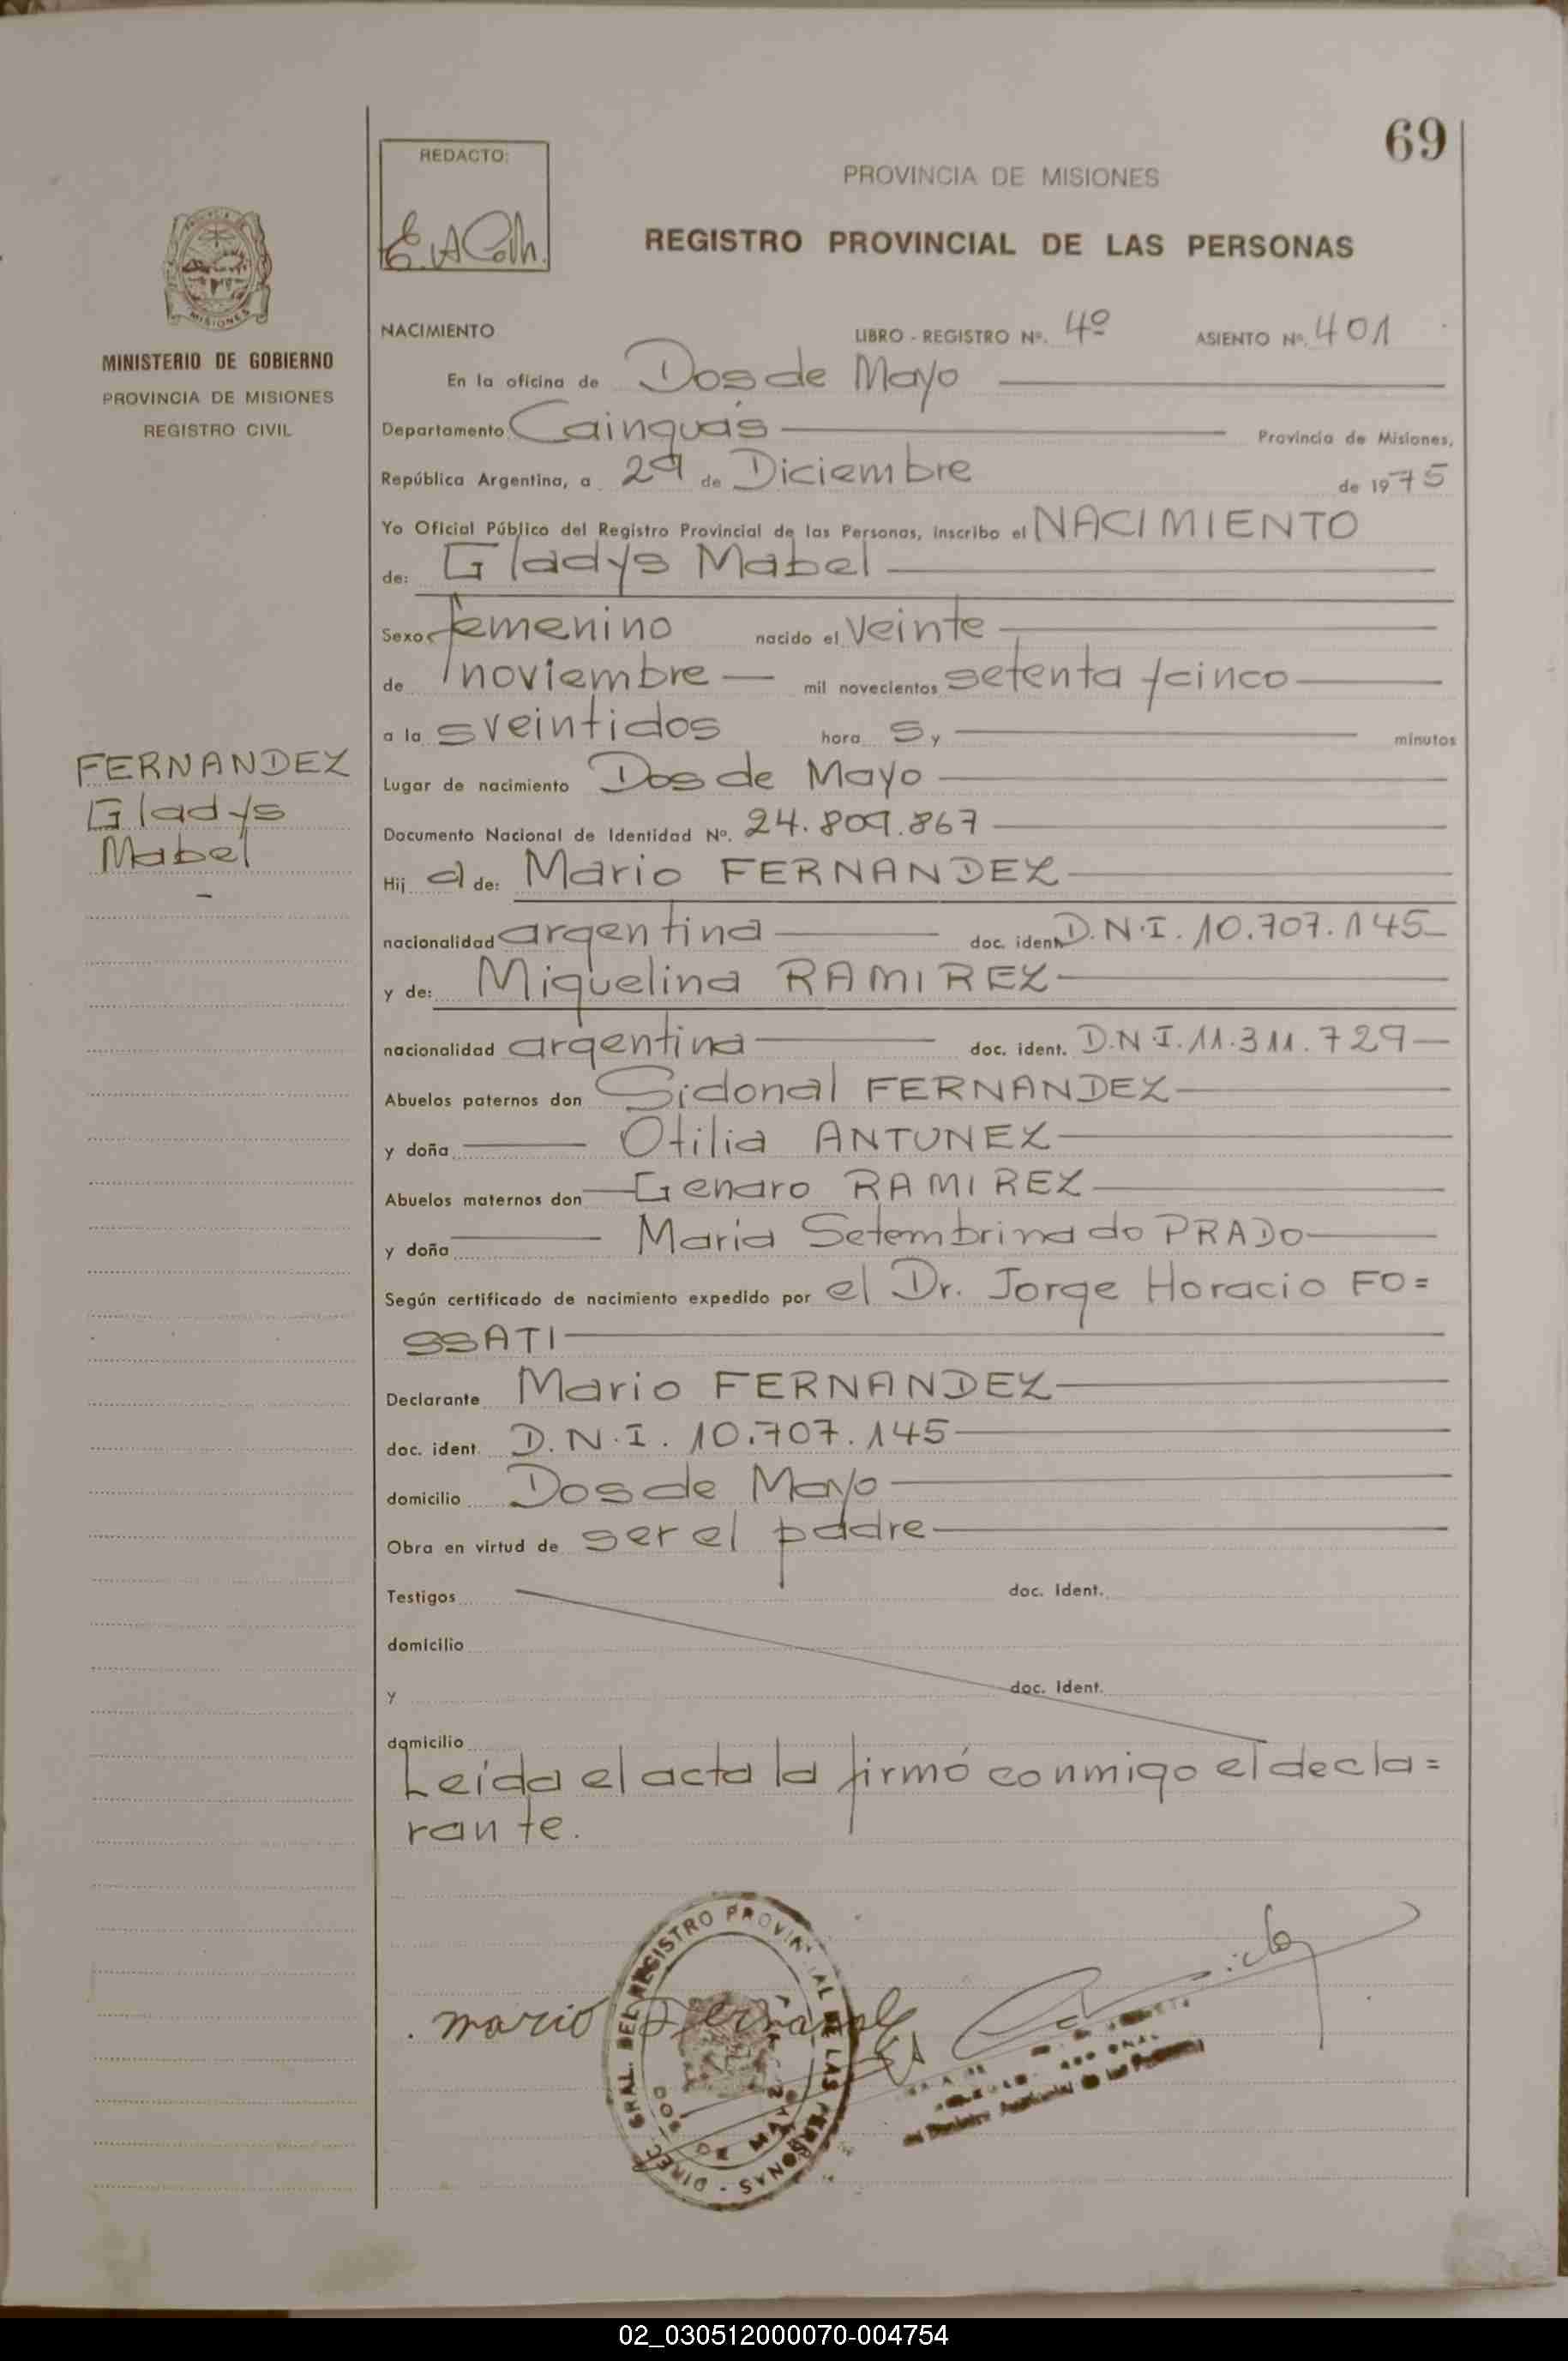 69
REDACTO:
PROVINCIA DE MISIONES
REGISTRO PROVINCIAL DE LAS PERSONAS
MISIONES
MINISTERIO DE GOBIERNO
PROVINCIA DE MISIONES
REGISTRO CIVIL
FERNANDEZ
Gladys
Mabel
NACIMIENTO LIBRO - REGISTRO Nº. 4º ASIENTO Nº. 401
En la oficina de Dos de Mayo
Departamento Cainguás Provincia de Misiones,
República Argentina, a 29 de Diciembre de 1975
Yo Oficial Público del Registro Provincial de las Personas, inscribo el NACIMIENTO
de: Gladys Mabel
Sexo femenino nacido el veinte
de noviembre mil novecientos setenta y cinco
a la s veintidos hora s y minutos
Lugar de nacimiento Dos de Mayo
Documento Nacional de Identidad Nº. 24.809.867
Hij a de: Mario FERNANDEZ
nacionalidad argentina doc. ident. D.N.I. 10.707.145
y de: Miquelina RAMIREZ
nacionalidad argentina doc. ident. D.N.I. 11.311.729
Abuelos paternos don Sidonal FERNANDEZ
y doña Otilia ANTUNEZ
Abuelos maternos don Genaro RAMIREZ
y doña Maria Setembrina do PRADO
Según certificado de nacimiento expedido por el Dr. Jorge Horacio FO=
SSATI
Declarante Mario FERNANDEZ
doc. ident. D.N.I. 10.707.145
domicilio Dos de Mayo
Obra en virtud de ser el padre
Testigos doc. ident.
domicilio
y doc. ident.
domicilio
Leída el acta la firmó conmigo el decla=
rante.
mario Fernandez
DIREC. GRAL. DEL REGISTRO PROVINCIAL DE LAS PERSONAS
DOS DE MAYO
02_030512000070-004754